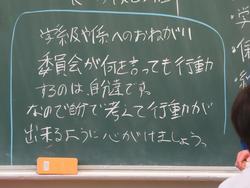 学級や係へのおねがい
委員会が何を言っても行動
するのは、自分達です。
なので自分で考えて行動が
出来るように心がけましょう。